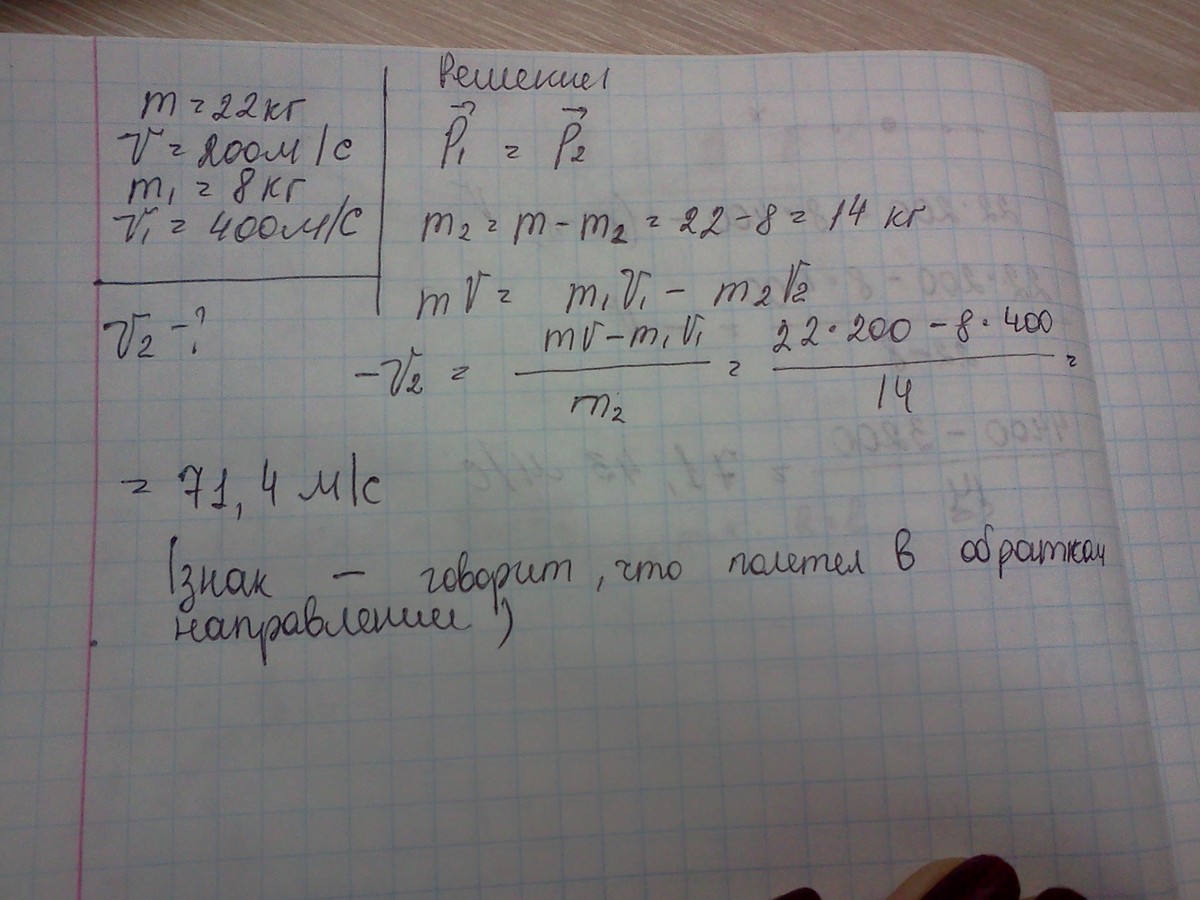 m = 22 кг
V = 200 м/с
m₁ = 8 кг
V₁ = 400 м/с
V₂ - ?
Решение
P⃗₁ = P⃗₂
m₂ = m - m₂ = 22 - 8 = 14 кг
mV = m₁V₁ - m₂V₂
-V₂ = (mV - m₁V₁)/m₂ = (22·200 - 8·400)/14 =
= 71,4 м/с
(знак - говорит, что полетел в обратном
направлении)